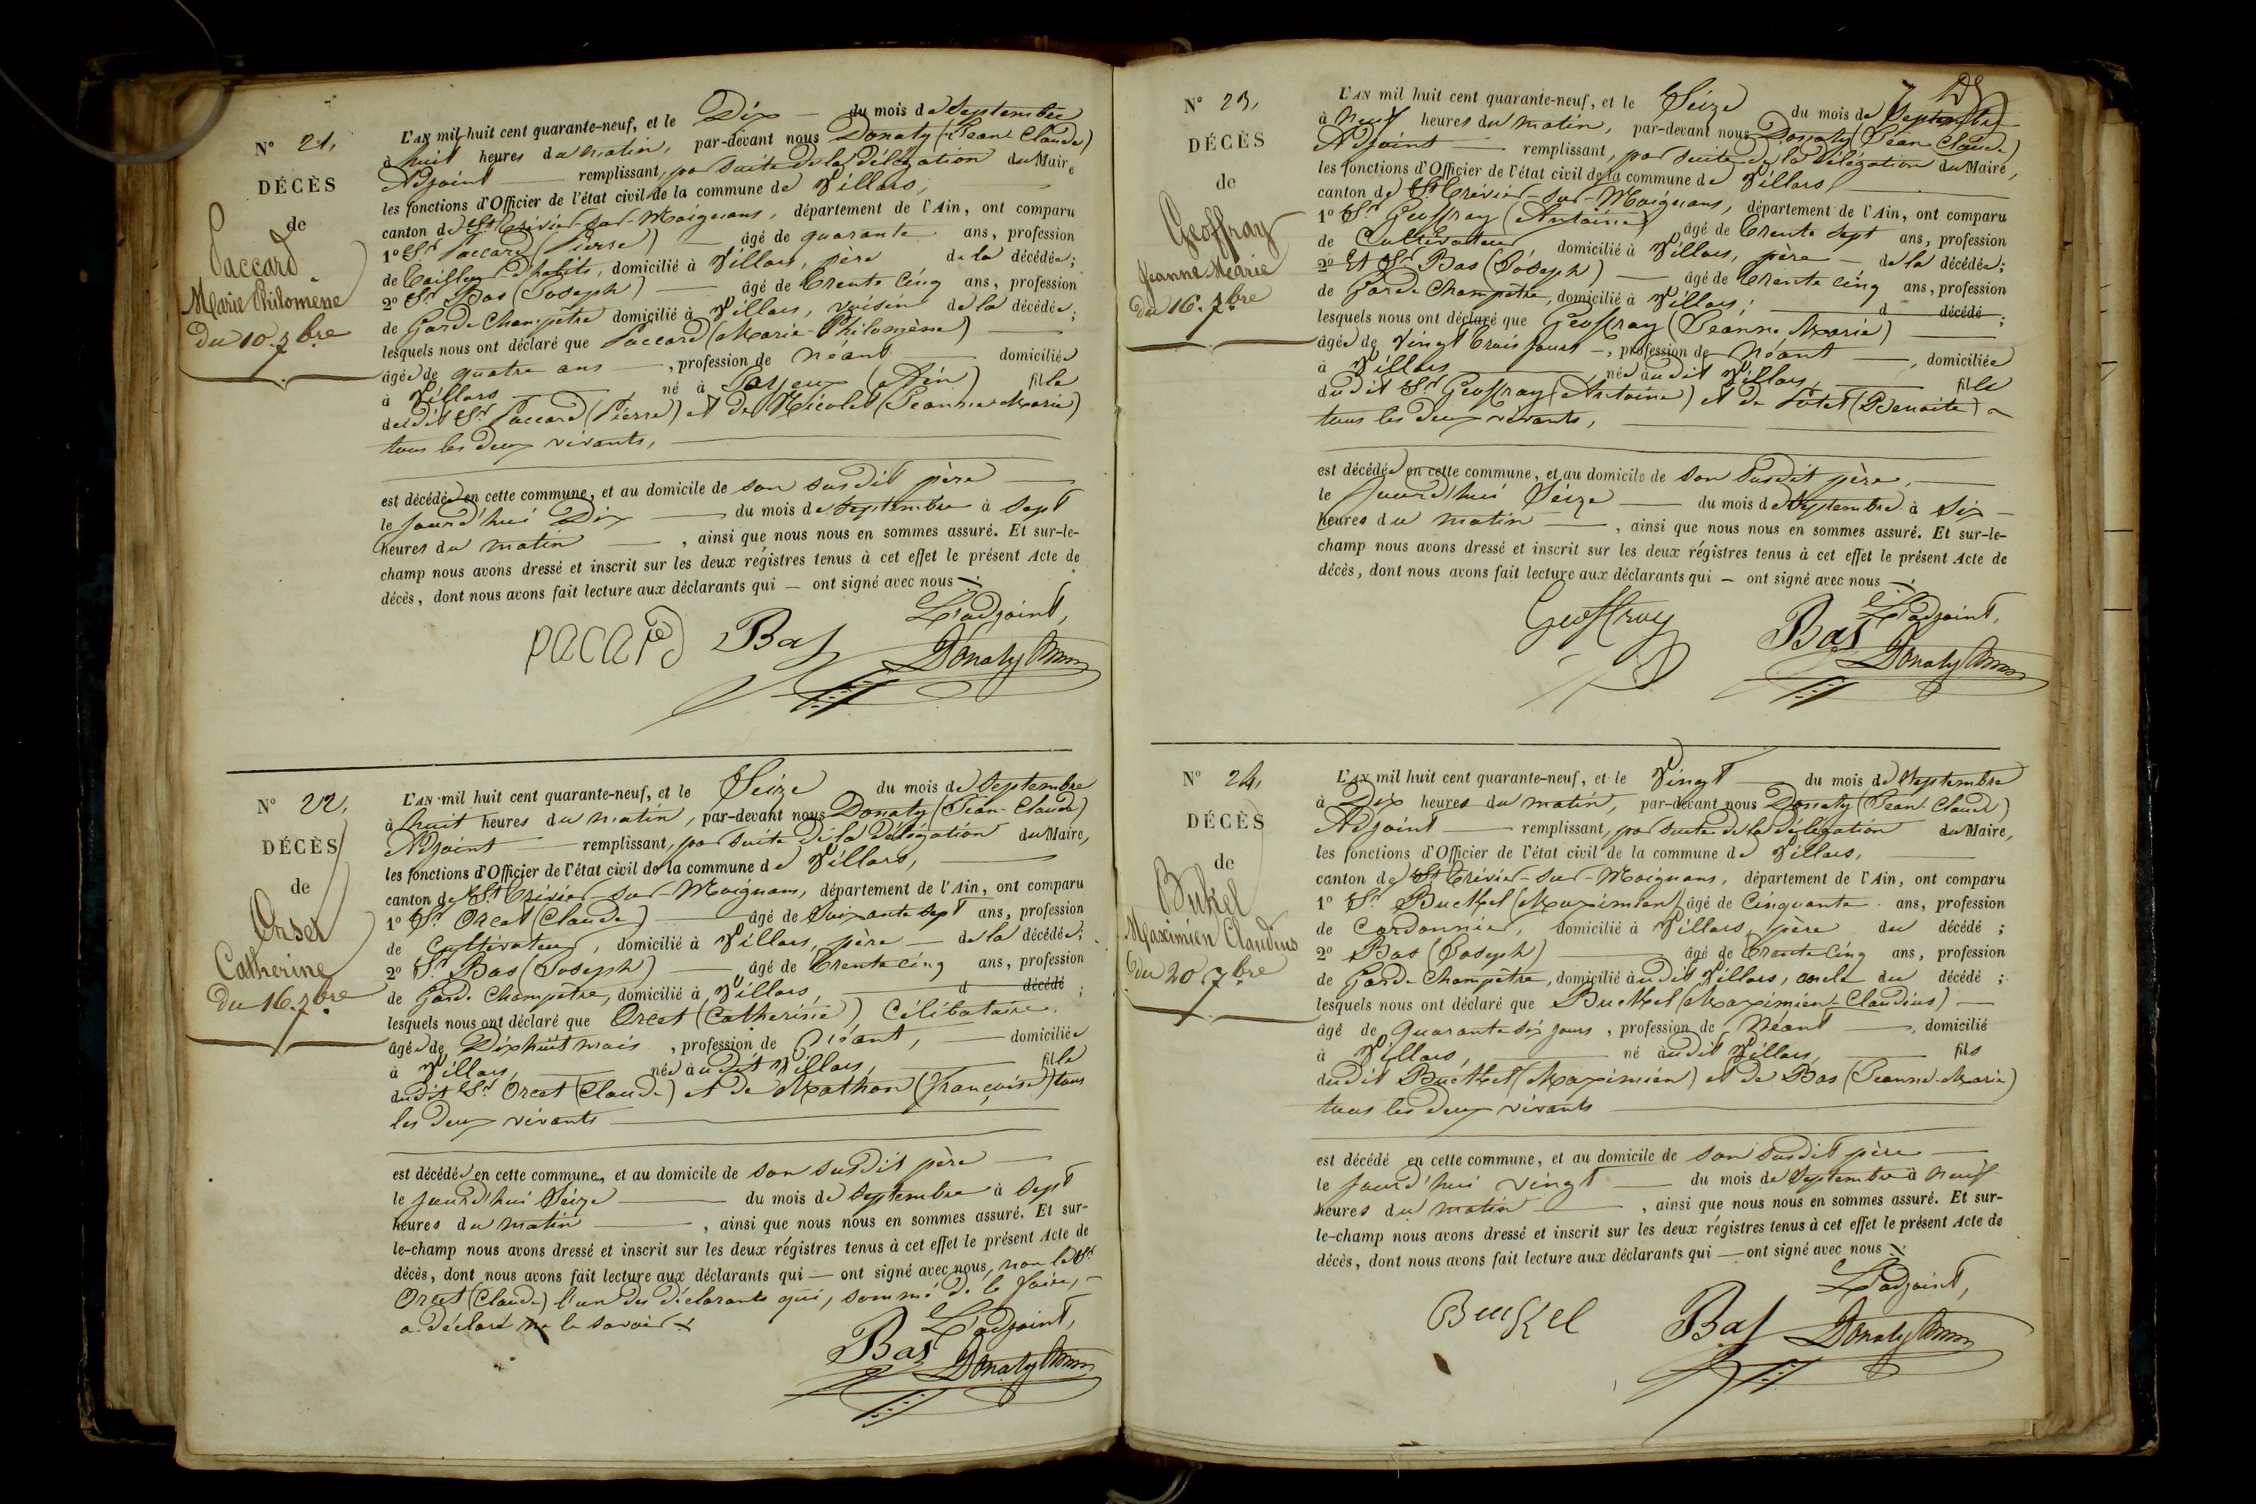 N° 21.
DÉCÈS
de
Paccard
Marie Philomène
du 10 7bre
L'AN mil huit cent quarante-neuf, et le Dix du mois de Septembre
à huit heures du matin, par-devant nous Donaty (Jean Claude)
Adjoint remplissant, par suite de la délégation du Maire
les fonctions d'Officier de l'état civil de la commune de Villars,
canton de St Trivier-sur-Moignans, département de l'Ain, ont comparu
1° Sr Paccard (Pierre) âgé de quarante ans, profession
de Tailleur d'habits, domicilié à Villars, père de la décédée;
2° Sr Bas (Joseph) âgé de trente cinq ans, profession
de Garde Champêtre domicilié à Villars, voisin de la décédée;
lesquels nous ont déclaré que Paccard (Marie-Philomène)
âgée de quatre ans, profession de Néant domiciliée
à Villars né à (Ain) fille
dudit Sr Paccard (Pierre) et de Nicolet (Jeanne Marie)
tous les deux vivants,
est décédée en cette commune, et au domicile de son susdit père
le jourd'hui Dix du mois de Septembre à Sept
heures du matin, ainsi que nous nous en sommes assuré. Et sur-le-
champ nous avons dressé et inscrit sur les deux régistres tenus à cet effet le présent Acte de
décès, dont nous avons fait lecture aux déclarants qui — ont signé avec nous
L'adjoint,
pacard Bas Donaty
N° 22.
DÉCÈS
de
Orset
Catherine
du 16 7bre
L'AN mil huit cent quarante-neuf, et le Seize du mois de Septembre
à huit heures du matin, par-devant nous Donaty (Jean-Claude)
Adjoint remplissant, par suite de la délégation du Maire,
les fonctions d'Officier de l'état civil de la commune de Villars,
canton de St Trivier-sur-Moignans, département de l'Ain, ont comparu
1° Sr Orcet (Claude) âgé de Soixante sept ans, profession
de Cultivateur, domicilié à Villars, père de la décédée;
2° Sr Bas (Joseph) âgé de trente cinq ans, profession
de Garde Champêtre, domicilié à Villars, d décédé ;
lesquels nous ont déclaré que Orcet (Catherine) Célibataire,
âgée de Dix huit mois, profession de Néant, domiciliée
à Villars, née audit Villars, fille
dudit Sr Orcet (Claude) et de Mathon (Françoise) tous
les deux vivants
est décédée en cette commune, et au domicile de son susdit père
le jourd'hui Seize du mois de Septembre à Sept
heures du matin, ainsi que nous nous en sommes assuré. Et sur-
le-champ nous avons dressé et inscrit sur les deux régistres tenus à cet effet le présent Acte de
décès, dont nous avons fait lecture aux déclarants qui — ont signé avec nous, non ledt Sr
Orcet (Claude) l'un des déclarants qui, sommé de le faire,
a déclaré ne le savoir
L'adjoint,
Bas Donaty
N° 23.
DÉCÈS
de
Geoffray
Jeanne Marie
du 16 7bre
L'AN mil huit cent quarante-neuf, et le Seize du mois de Septembre
à Neuf heures du matin, par-devant nous Donaty (Jean Claude)
Adjoint remplissant, par suite de la délégation du Maire,
les fonctions d'Officier de l'état civil de la commune de Villars,
canton de St Trivier-sur-Moignans, département de l'Ain, ont comparu
1° Sr Geoffray (Antoine) âgé de trente sept ans, profession
de Cultivateur, domicilié à Villars, père de la décédée;
2° Et Sr Bas (Joseph) âgé de trente cinq ans, profession
de Garde Champêtre, domicilié à Villars, d décédé ;
lesquels nous ont déclaré que Geoffray (Jeanne Marie)
âgée de Vingt trois jours, profession de Néant, domiciliée
à Villars, née audit Villars, fille
dudit Sr Geoffray (Antoine) et de Putet (Benoite)
tous les deux vivants,
est décédée en cette commune, et au domicile de son susdit père,
le jourd'hui Seize du mois de Septembre à Six
heures du matin, ainsi que nous nous en sommes assuré. Et sur-le-
champ nous avons dressé et inscrit sur les deux régistres tenus à cet effet le présent Acte de
décès, dont nous avons fait lecture aux déclarants qui — ont signé avec nous
L'adjoint,
Geoffray Bas Donaty
N° 24.
DÉCÈS
de
Bukel
Maximien Claudius
du 20 7bre
L'AN mil huit cent quarante-neuf, et le Vingt du mois de Septembre
à Dix heures du matin, par-devant nous Donaty (Jean Claude)
Adjoint remplissant, par suite de la délégation du Maire,
les fonctions d'Officier de l'état civil de la commune de Villars,
canton de St Trivier-sur-Moignans, département de l'Ain, ont comparu
1° Sr Buckel (Maximien) âgé de Cinquante ans, profession
de Cordonnier, domicilié à Villars, père du décédé ;
2° Bas (Joseph) âgé de trente cinq ans, profession
de Garde Champêtre, domicilié audit Villars, oncle du décédé ;
lesquels nous ont déclaré que Buckel (Maximien-Claudius)
âgé de Quarante six jours, profession de Néant, domicilié
à Villars, né audit Villars, fils
dudit Buckel (Maximien) et de Bas (Jeanne-Marie)
tous les deux vivants
est décédé en cette commune, et au domicile de son susdit père
le jourd'hui vingt du mois de Septembre à Neuf
heures du matin, ainsi que nous nous en sommes assuré. Et sur-
le-champ nous avons dressé et inscrit sur les deux régistres tenus à cet effet le présent Acte de
décès, dont nous avons fait lecture aux déclarants qui — ont signé avec nous
L'adjoint,
Buckel Bas Donaty